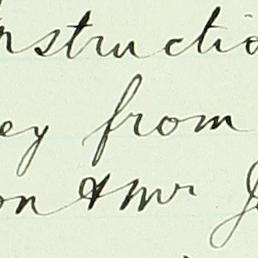 nstructio
ey from
on & Mr J